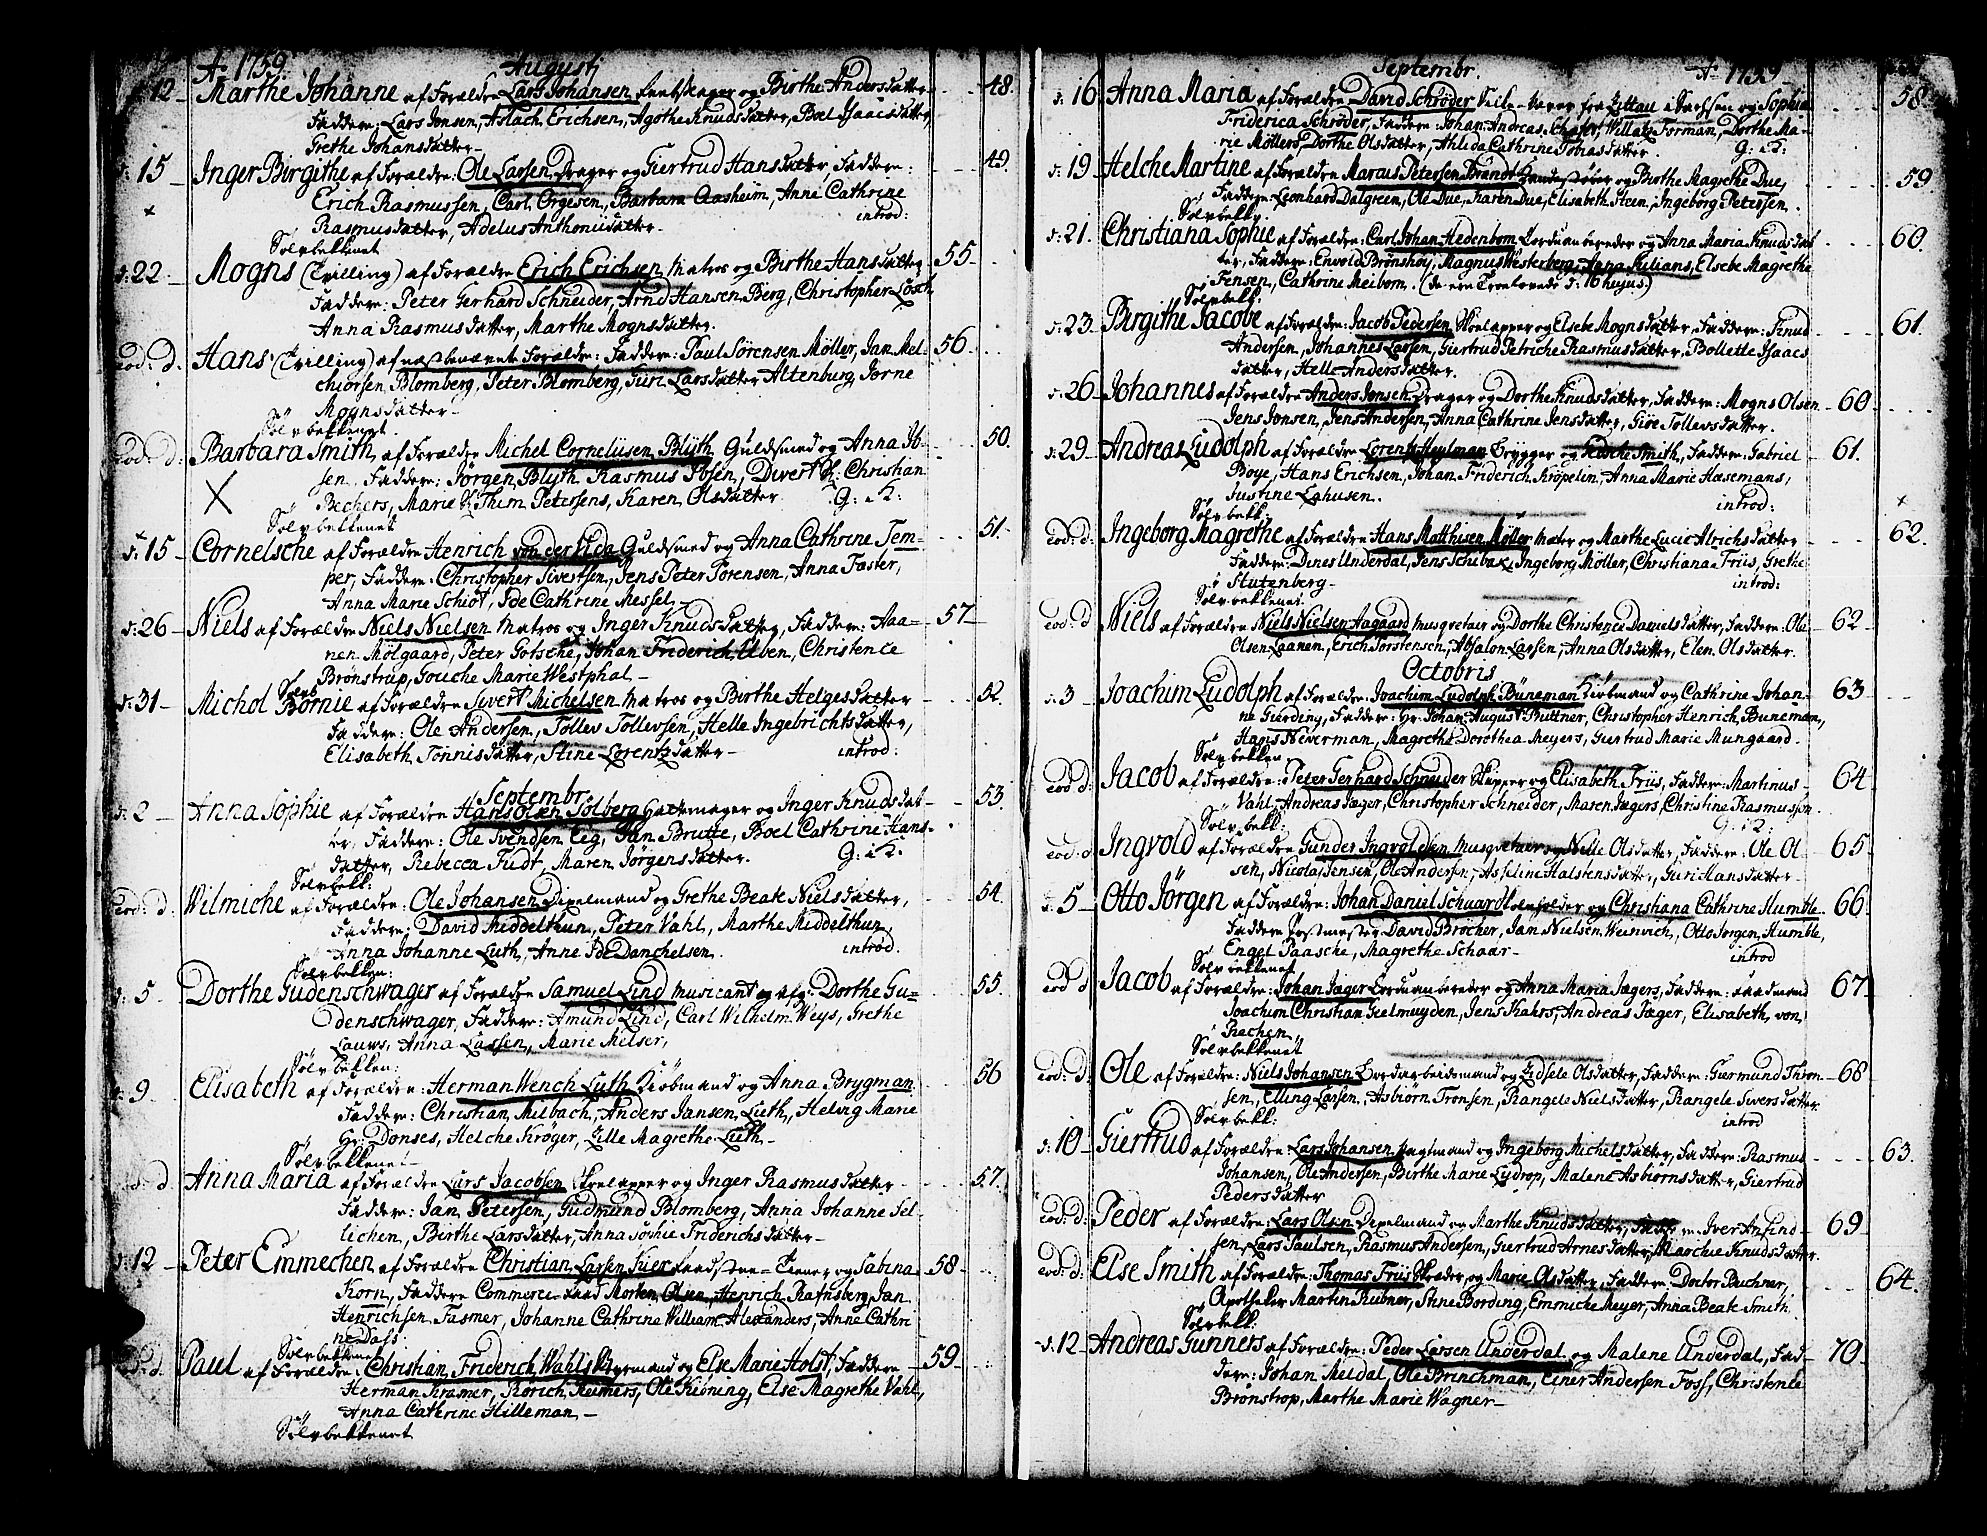 A: 1759. Augusti
12 Marthe Johanne af Forældre Lars Johansen og Birthe Andersdatter 48.
Faddere: Lars Jonsen, Aslach Erichsen, Agothe Knudsdatter, Boel Isaacsdatter,
Grethe Johansdatter
d: 15 Inger Birgithe af Forældre: Ole Larsen Drager og Giertrud Hansdatter Faddere: 49.
Erich Rasmussen, Carl Orgesen, Barbara Aasheim, Anne Cathrine
Rasmusdatter, Adelus Anthoniidatter introd:
Sölvbekkenet
d: 22 Mogns (Tvilling) af Forældre Erich Erichsen Matros og Birthe Hansdatter 55
Faddere: Peter Gerhard Schneider, Arnd Hansen Berg, Christopher Losch
Anna Rasmusdatter, Marthe Mognsdatter.
eod: d. Hans (Tvilling) af næstbenævnte Forældre: Faddere: Paul Sörensen Möller, Jan Mel- 56
chiorsen Blomberg, Peter Blomberg, Guri Larsdatter Altenburg, Jorne
Mognsdatter
Sölvbekkenet
eod: d: Barbara Smith af Forældre Michel Cornelüsen Blÿth Guldsmed og Anna Ib- 50.
sen. Faddere: Jörgen Blÿth Rasmus Ibsen, Divert Christian
Bechers, Marie Thim Petersens, Karen Olsdatter G: K:
Sölvbekkenet
d: 15 Cornelsche af Forældre Henrich von der Lida Guldsmed og Anna Cathrine Tem- 51.
per, Faddere: Christopher Sivertsen, Jens Peter Sorensen, Anna Faster,
Anna Marie Schiöt, Ide Cathrine Messel
d: 26 Niels af Forældre Niels Nielsen Matros og Inger Knudsdatter, Faddere: Aaa- 57
nen Mölgaard, Peter Gotsche, Johan Friderich Uben, Christence
Brönstrup, Gouche Marie Westphal
Sölvb
d: 31 Michol Bornie af Forældre Sivert Michelsen Matros og Birthe Helgesdatter 52.
Faddere: Ole Andersen, Tollev Tollevsen, Helle Ingebrichtsdatter,
Elisabeth Tönnisdatter, Stine Lorentzdatter introd:
Septembr.
d: 2 Anna Sophie af Forældre Hans Olsen Solberg Hattemager og Inger Knudsdat- 53.
ter, Faddere: Ole Svendsen Eeg, Jan Brutte, Boel Cathrine Hans-
datter, Rebecca Fudt, Maren Jörgensdatter. G: K:
Sölvbekk:
eod: d. Wilmiche af Forældre: Ole Johansen Dixelmand og Grethe Beate Nielsdatter, 54.
Faddere: David Middelthun, Peter Vahl, Marthe Middelthun,
Anna Johanne Luth, Anne Danchelsen. introd.
Sölvbekken:
d: 5 Dorthe Gudenschwager af Forældre Samuel Lind Musicant og Dorthe Gu- 55.
denschwager, Faddere: Amund Lind, Carl Wilhelm Weys, Grethe
Lauws, Anna Lassen, Marie Melser,
Sölvbekken:
d: 9 Elisabeth af Forældre: Herman Wench Luth Kiöbmand og Anna Brygman 56
Faddere: Christian Milbach, Anders Jansen Luth, Helvig Marie
Donses, Helche Kröger, Zille Magrethe Luth
Sölvbekkenet
eod: d Anna Maria af Forældre Lars Jacobsen Skoelapper og Inger Rasmusdatter 57.
Faddere: Jan Petersen, Gudmund Blomberg, Anna Johanne Sel-
lichen, Birthe Larsdatter, Anna Sophie Friderichsdatter
d: 12 Peter Emmechen af Forældre Christian Larsen Kier og Sabina 58
Korn, Faddere Commerce Raad Morten Olsen, Henrich Rafnsberg, Jan
Henrichsen Fasmer, Johanne Cathrine William Alexanders, Anne Cathri
ne Dass
Sölvbekkenet
eod: d. Paul af Forældre: Christian Friderich Wahl og Else Marie Holst, Faddere 59
Herman Kramer, Rorich Reimers, Ole Kiöning, Else Magrethe Vahl,
Anna Cathrine Hilleman
Sölvbekkenet
Septembr. A: 1759
d: 16 Anna Maria af Forældre David Schröder fra Zittau i Sachsen og Sophia 58
Friderica Schröder, Faddere: Johan Andreas Schafer, Willatz Forman, Dorthe Ma-
rie Möllers, Dorthe Olsdatter, Ahlida Cathrine Tobiasdatter. G: K:
d: 19 Helche Martine af Forældre Marcus Petersen Brandt og Birthe Magrethe Due, 59
Faddere Leonhard Dalgreen, Ole Due, Karen Due, Elisabeth Steen, Ingeborg Petersen.
Sölvbekk.
d: 21. Christiana Sophie af Forældre: Carl Johan Hedenbom Corduanbereder og Anna Maria Knudsdat 60.
ter, Faddere: Envold Brönshoy, Magnus Westerberg, Anna Julians, Elsebe Magrethe
Jensen, Catherine Meibom. (de ere Troelovede d: 16 hujus.)
Sölvbekk:
d: 23. Birgithe Jacobe af Forældre: Jacob Pedersen Skoelapper og Elsebe Mognsdatter, Faddere: Knud 61.
Andersen, Johannes Larsen, Giertrud Petriche Rasmusdatter, Bollette Isaacs
datter, Helle Andersdatter.
d: 26 Johannes af Forældre Anders Jonsen Drager og Dorthe Knudsdatter, Faddere: Mogns Olsen 60
Jens Jonsen, Jens Andersen, Anna Cathrine Jensdatter, Giöe Tollevsdatter.
d: 29 Andreas Ludolph af Forældre Lorentz Heylman Brygger og Smith, Faddere: Gabriel 61.
Boye, Hans Erichsen, Johan Friderich Kröpelin, Anna Marie Hasemans,
Justine Lahusen. introd:
Sölvbekk:
eod: d: Ingeborg Magrethe af Forældre Hans Matthisen Möller og Marthe Lucie Alrichsdatter 62.
Faddere: Dines Underdal, Jens Schibak, Ingeborg Möller, Christiana Friis, Grethe
Stutenberg introd:
Sölvbekkenet
eod: d Niels af Forældre Niels Nielsen Aagaard Musqvetair og Dorthe Christence Danielsdatter, Faddere: Ole 62
Olsen Laanen, Erich Torstensen, Absalon Larsen, Anna Olsdatter, Elen Olsdatter.
Octobris
d: 3 Joachim Ludolph af Forældre: Joachim Ludolph Büneman Kiöbmand og Cathrine Johan- 63
ne Gerding, Faddere: Hr: Johan August Buttner, Christopher Henrich Buneman,
Hans Neverman, Magrethe Dorothea Meyers, Giertrud Marie Mungaard.
Sölvbekken
eod d: Jacob af Forældre: Peter Gerhard Schneider Skipper og Elisabeth Friis, Faddere: Martinus 64
Vahl, Andreas Jæger, Christopher Schneider, Maren Jægers, Christine Rasmussen.
Sölvbekk: G: K:
eod: d Ingvold af Forældre Gunder Ingvoldsen Musqvetair og Nille Olsdatter, Faddere: Ole Ol- 65
sen, Nicolai Jensen, Ole Andersen, Asseline Halstensdatter, Guri Hansdatter
d: 5 Otto Jörgen af Forældre: Johan Daniel Schuardt og Christiana Cathrine Humble 66
Faddere Postmester David Bröcher, Jan Nielsen Weinvich, Otto Jörgen Humble,
Engel Paasche, Magrethe Schaar introd
Sölvbekkenet
eod d Jacob af Forældre: Johan Jæger Corduanbereder og Anna Maria Jægers, Faddere: Raadmand 67
Joachim Christian Geelmuyden, Jens Kahrs, Andreas Jæger, Elisabeth von
Aachen
Sölvbekkenet
eod: d: Ole af Forældre: Niels Johansen og Lidsele Olsdatter, Faddere: Giermund Thron 68
sen, Elling Larsen, Asbiörn Tronsen, Rangele Nielsdatter, Rangele Siversdatter
Sölvbekk: introd
d: 10 Giertrud af Forældre: Lars Johansen og Ingeborg Michelsdatter, Faddere: Rasmus 63.
Johansen, Ole Andersen, Birthe Marie Lydrop, Malene Asbiörnsdatter, Giertrud
Pedersdatter
eod: d: Peder af Forældre: Lars Olsen Dixelmand og Marthe Knudsdatter, Iver Amund- 69
sen, Lars Paulsen, Rasmus Andersen, Giertrud Arnesdatter, Marchie Knudsdatter.
eod: d. Else Smith af Forældre: Thomas Friis og Marie Olsdatter, Faddere Doctor Buchner, 64.
Apotheker Martin Rubner, Stine Bording, Emmiche Meyer, Anna Beate Smith.
Sölvbekk:
d: 12 Andreas Gunners af Forældre: Peder Larsen Underdal og Malene Underdal, Fad- 70
dere: Johan Meldal, Ole Brinchman, Einer Andersen Foss, Christence
Brönstrop, Marthe Marie Wagner